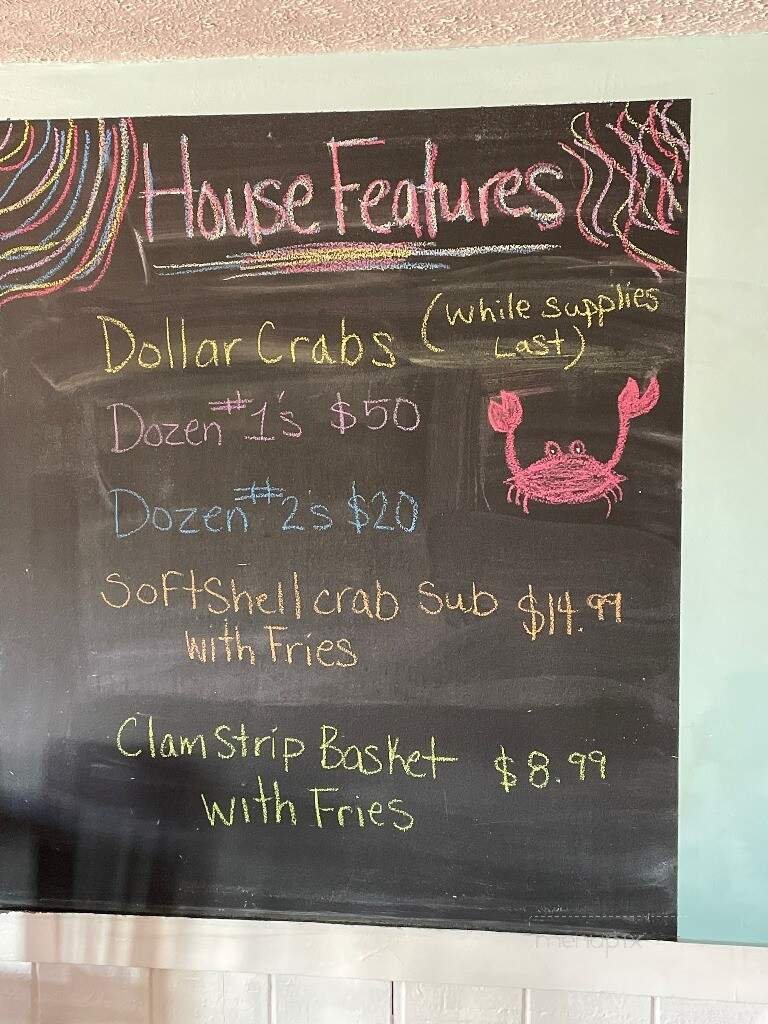 House Features
Dollar Crabs (While Supplies
Last)
Dozen #1's $50
Dozen #2's $20
Softshell crab Sub $14.99
with Fries
Clam Strip Basket $8.99
with Fries
menupix